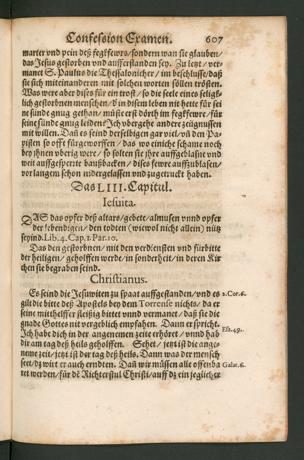 Confession Examen. 607
marter vnd pein deß fegfewrs/sondern wan sie glauben/
das Jesus gestorben vnd aufferstanden sey. Zu letzt/ ver-
manet S. Paulus die Thessalonicher/ im beschluß/ daß
sie sich miteinanderen mit solchen worten söllen trösten.
Was were aber dises für ein trost/ so die seele eines selig-
lich gestorbnen menschen/ d in disem leben nit hette für sei
ne sünde gnug gethan/ müste erst dört im fegfewr/ für
seine sünde gnug leiden? Ich vbergehe andere zeügnussen
mit willen. Dañ es seind derselbigen gar viel/ vñ den Pa-
pisten so offt fürgeworffen/ das wo einiche schame noch
bey jhnen vberig were/ so solten sie jhre auffgeblaßne vnd
weit auffgesperte baußbacken/ dises fewr auffzublasen/
vor langem schon nidergelassen vnd zugetruckt haben.
Das LIII. Capitul.
Jesuita.
DAS das opfer deß altars/ gebett/ almusen vnnd opfer
der lebendigen/ den todten (wiewol nicht allein) nütz
seyind. Lib. 4. Cap. 1. Par. 10.
Das den gestorbnen/ mit den verdiensten vnd fürbitte
der heiligen/ geholffen werde/ in sonderheit/ in deren Kir
chen sie begraben seind.
Christianus.
Es seind die Jesuwiten zu spaat auffgestanden/ vnd es 2. Cor. 6.
gilt die bitte deß Apostels bey dem Torrense nichts/ da er
seine mithelffer fleißig bittet vnnd vermanet/ daß sie die
gnade Gottes nit vergeblich empfahen. Dann er spricht.
Ich habe dich in der angenemen zeite erhöret/ vnnd hab Esa. 49.
dir am tag deß heils geholffen. Sehet/ jetzt ist die ange-
neme zeit/ jetzt ist der tag deß heils. Dann was der mensch
seet/ dz wirt er auch erndten. Dañ wir müssen alle offenba Galat. 6.
ret werden/ für dẽ Richterstul Christi/ auff dz ein jeglicher